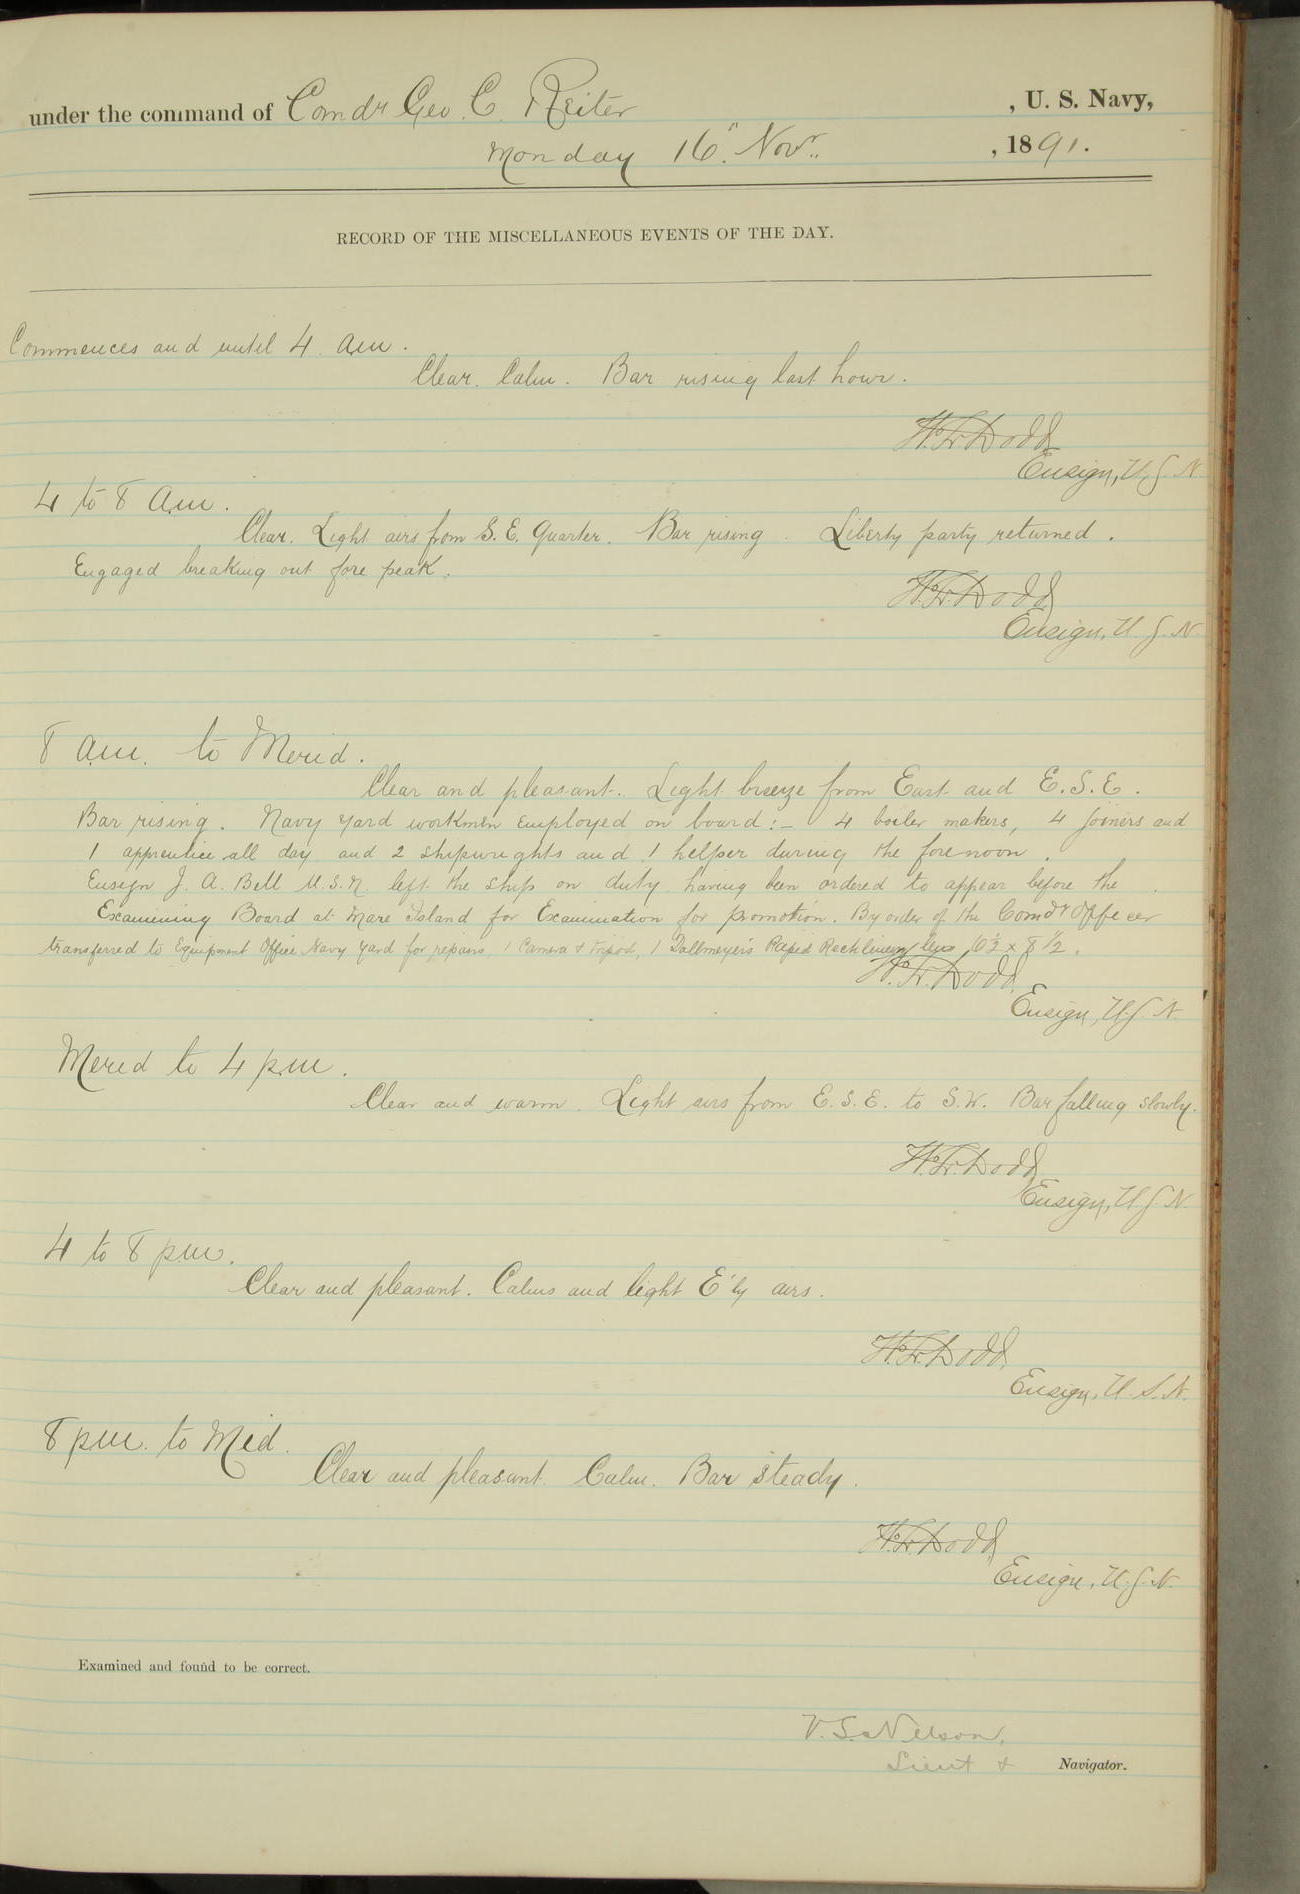 under the command of Comdr Geo. C. Reiter, U. S. Navy,
Monday 16" Novr., 1891.
RECORD OF THE MISCELLANEOUS EVENTS OF THE DAY.
Commences and until 4 am.
Clear. Calm. Bar rising last hour.
Ensign, U.S.N.
4 to 8 am.
Clear. Light airs from S.E. Quarter. Bar rising. Liberty party returned.
Engaged breaking out fore peak.
Ensign, U.S.N.
8 am. to Merid.
Clear and pleasant. Light breeze from East and E.S.E.
Bar rising. Navy Yard workmen employed on board:- 4 boiler makers, 4 joiners and
1 apprentice all day and 2 shipwrights and 1 helper during the forenoon.
Ensign J. A. Bell U.S.N. left the ship on duty having been ordered to appear before the
Examining Board at Mare Island for Examination for promotion. By order of the Comd'r Officer
transferred to Equipment Office Navy Yard for repairs 1 Camera & tripod, 1 Dallmeyer's Rapid Rectilinear lens 6½ x 8½.
Ensign, U.S.N.
Merid to 4 p.m.
Clear and warm. Light airs from E.S.E. to S.W. Bar falling slowly.
Ensign, U.S.N.
4 to 8 p.m.
Clear and pleasant. Calms and light E'ly airs.
Ensign, U.S.N.
8 p.m. to Mid.
Clear and pleasant. Calm. Bar steady.
Ensign, U.S.N.
Examined and found to be correct.
V. S. Nelson,
Lieut & Navigator.